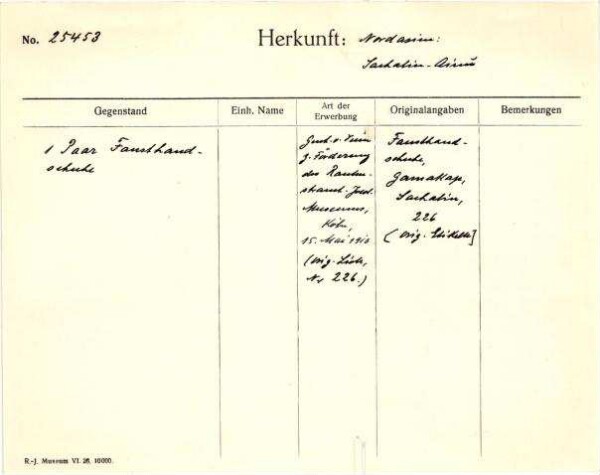 No. 25453
Herkunft: Nordasien:
Sachalin-Ainu
Gegenstand
Einh. Name
Art der
Erwerbung
Originalangaben
Bemerkungen
1 Paar Fausthand-
schuhe
v. Verein
z. Förderung
des Rauten-
strauch-Joest
Museums,
Köln,
15. Mai 1910
(orig. Liste,
No 226.)
Fausthand-
schuhe,
Sachalin,
226
(orig. Etikette]
R.-J. Museum VI. 28. 10000.